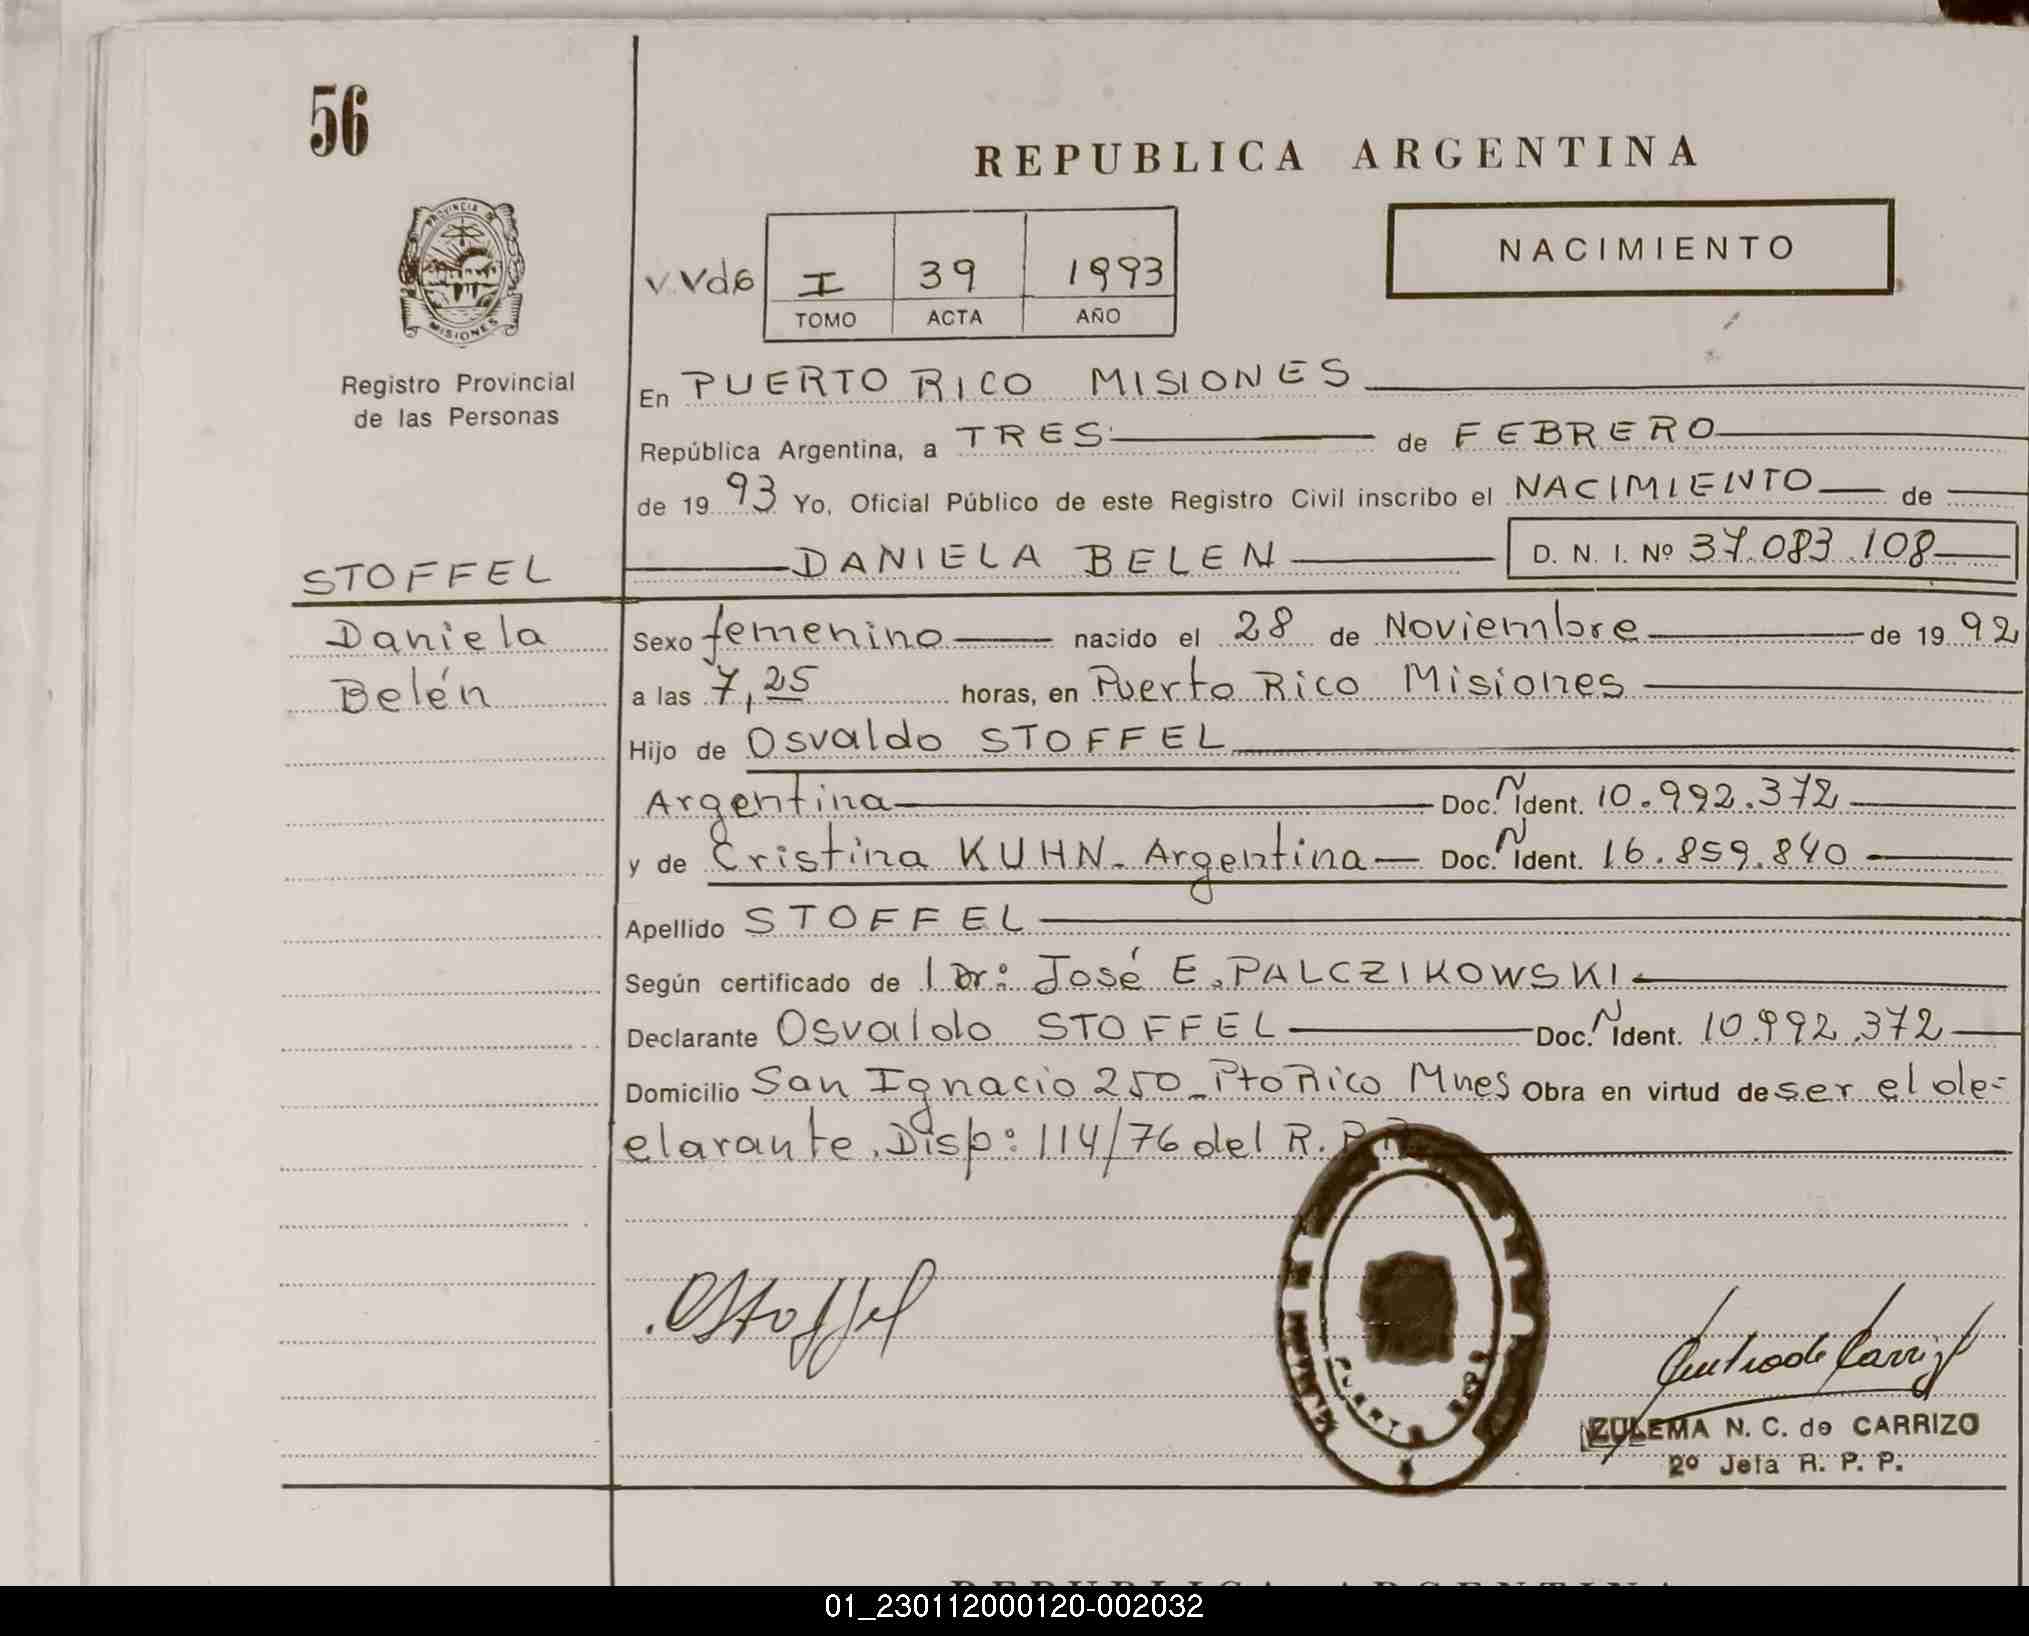 56
REPUBLICA ARGENTINA
PROVINCIA DE
MISIONES
NACIMIENTO
V. Vdo I 39 1993
TOMO ACTA AÑO
Registro Provincial
de las Personas
En PUERTO RICO MISIONES
República Argentina, a TRES de FEBRERO
de 19 93 Yo, Oficial Público de este Registro Civil inscribo el NACIMIENTO de
STOFFEL
DANIELA BELEN D. N. I. Nº 37.083.108
Daniela
Belén
Sexo femenino nacido el 28 de Noviembre de 19 92
a las 7,25 horas, en Puerto Rico Misiones
Hijo de Osvaldo STOFFEL
Argentina Doc. N Ident. 10.992.372
y de Cristina KUHN. Argentina Doc. N Ident. 16.859.840
Apellido STOFFEL
Según certificado de l Dr: José E. PALCZIKOWSKI
Declarante Osvaldo STOFFEL Doc. N Ident. 10.992.372
Domicilio San Ignacio 250_ Pto Rico Mnes Obra en virtud de ser el de-
clarante. Disp: 114/76 del R. P. P.
OStoffel
ZULEMA N. C. de CARRIZO
2º Jefa R. P. P.
REPUBLICA ARGENTINA
01_230112000120-002032